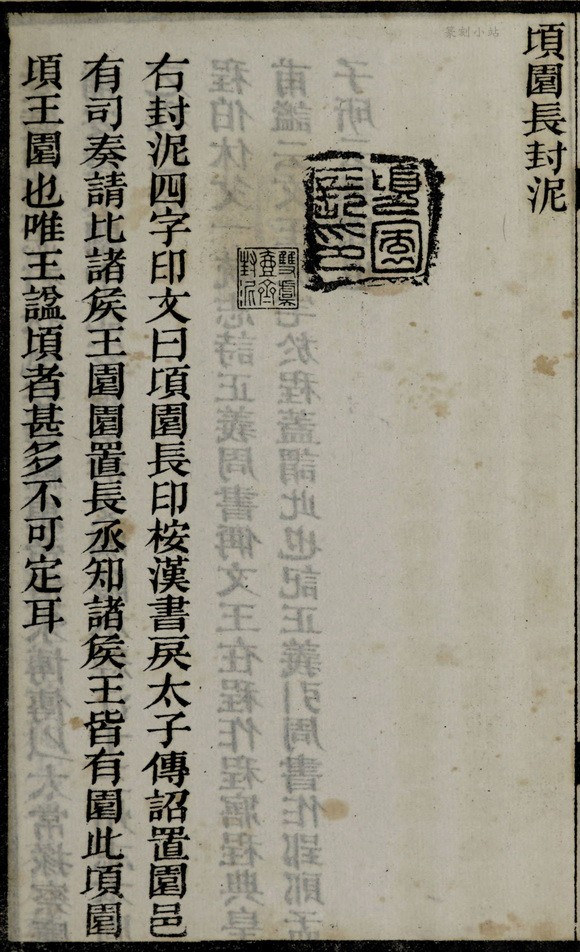 篆刻小站
頃園長封泥
雙虞
壺齊
封泥
右封泥四字印文曰頃園長印桉漢書戾太子傳詔置園邑
有司奏請比諸矦王園園置長丞知諸矦王皆有園此頃園
頃王園也唯王諡頃者甚多不可定耳